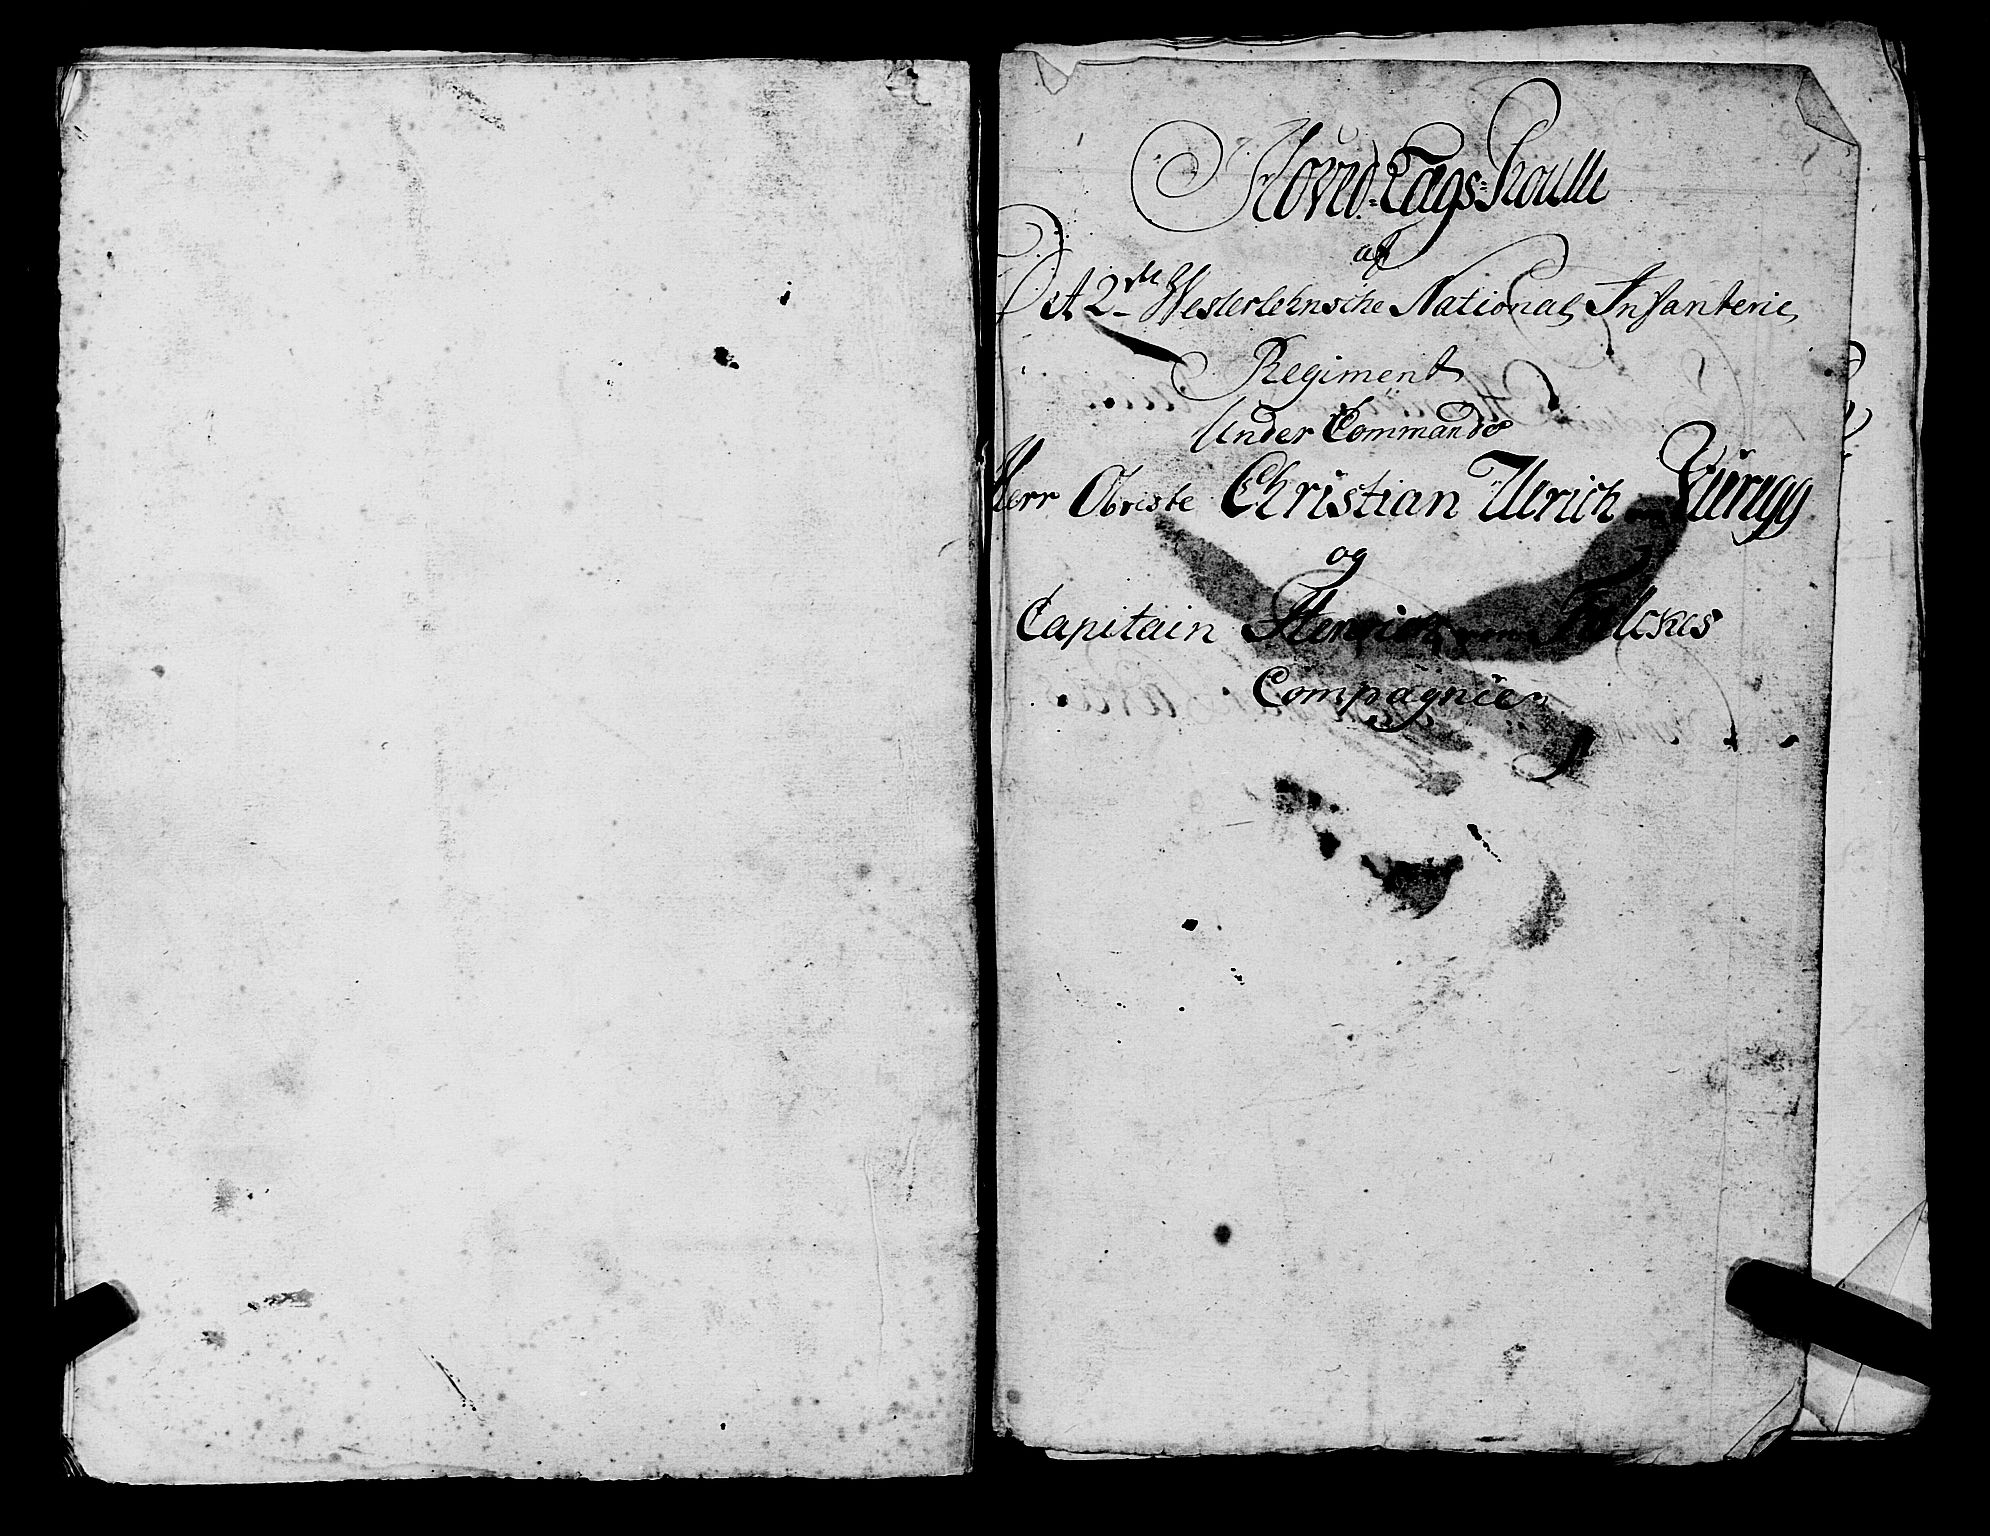 Hoved-Tags-Roulle
af
Det 2det Westerlehnsche National Infanterie
Regiment
Under Commando
Herr Obriste Christian Ulrich
og
Capitain Henrich von
Compagnie